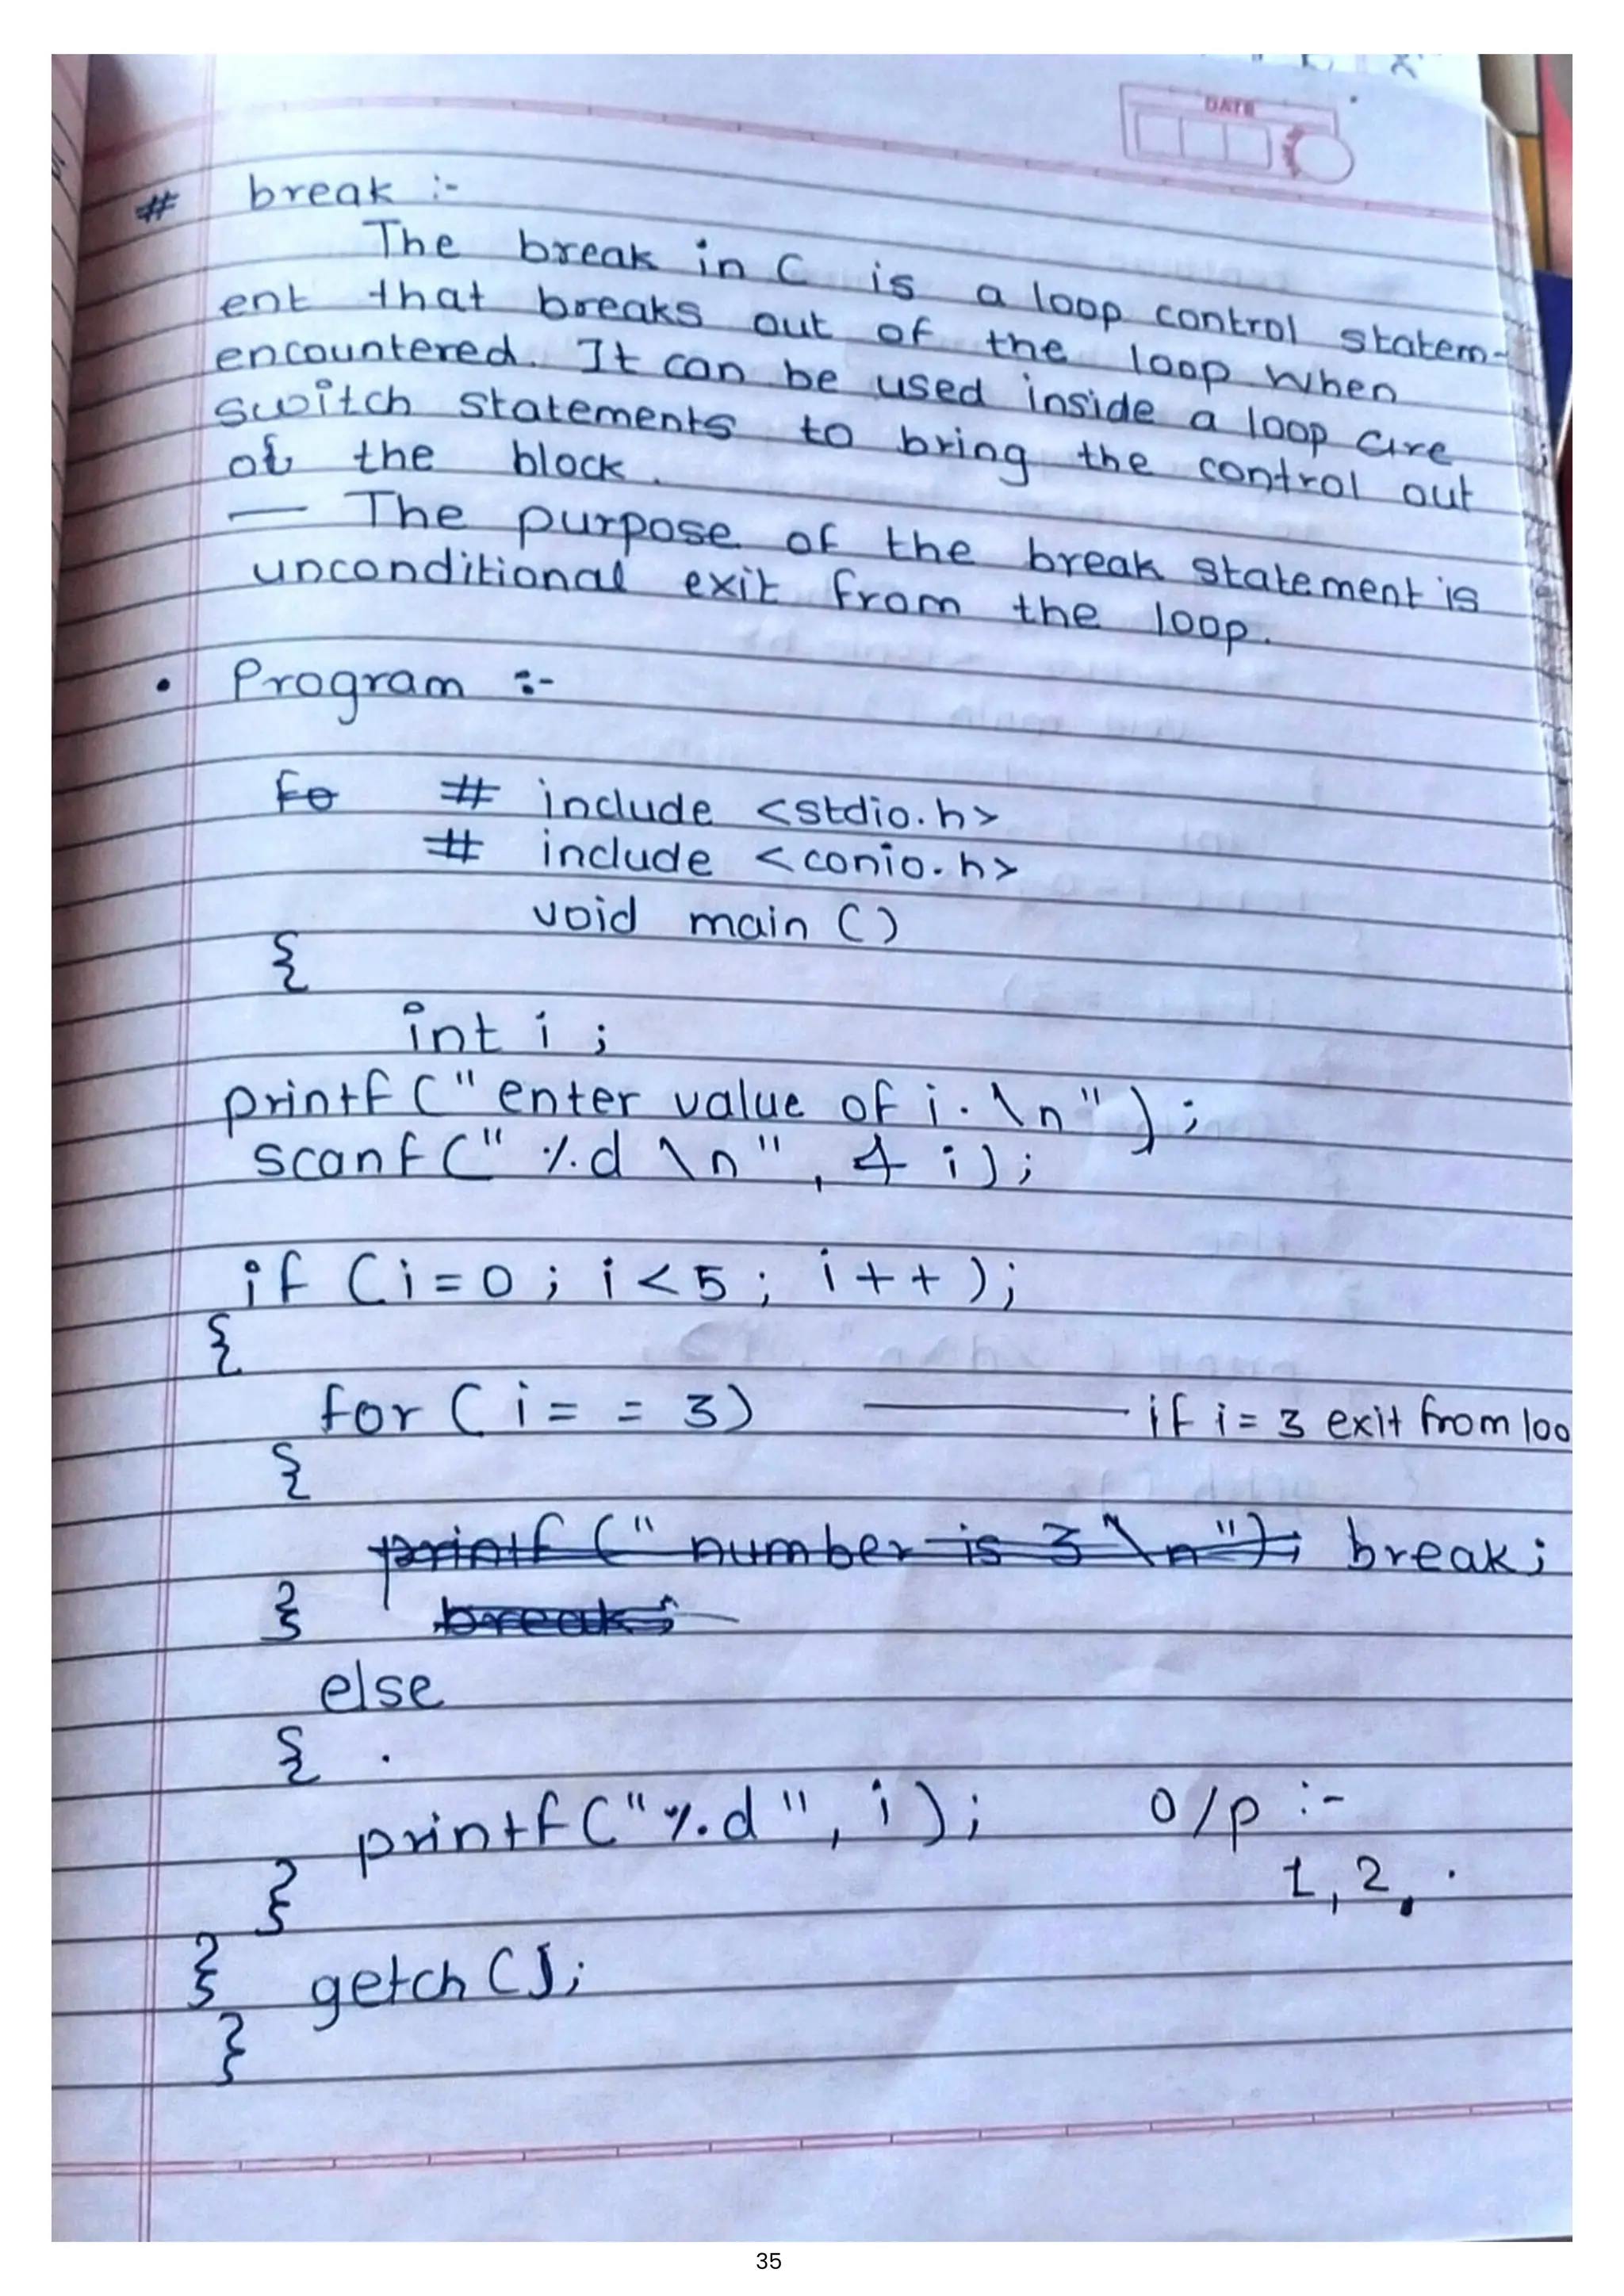 DATE
# break :-
The break in C is a loop control statem-
ent that breaks out of the loop when
encountered. It can be used inside a loop are
switch statements to bring the control out
of the block.
— The purpose of the break statement is
unconditional exit from the loop.
• Program :-
fo # include <stdio.h>
# include <conio.h>
void main ()
{
int i ;
printf (" enter value of i. \n" ) ;
scanf (" %d \n" , & i) ;
if (i = 0 ; i < 5 ; i + + ) ;
{
for ( i = = 3) ——— if i = 3 exit from loo
{
printf (" number is 3 \n") ; break ;
} break ;
else
{ .
printf (" %d " , i ) ; O/p :-
1, 2, .
}
} getch () ;
}
35